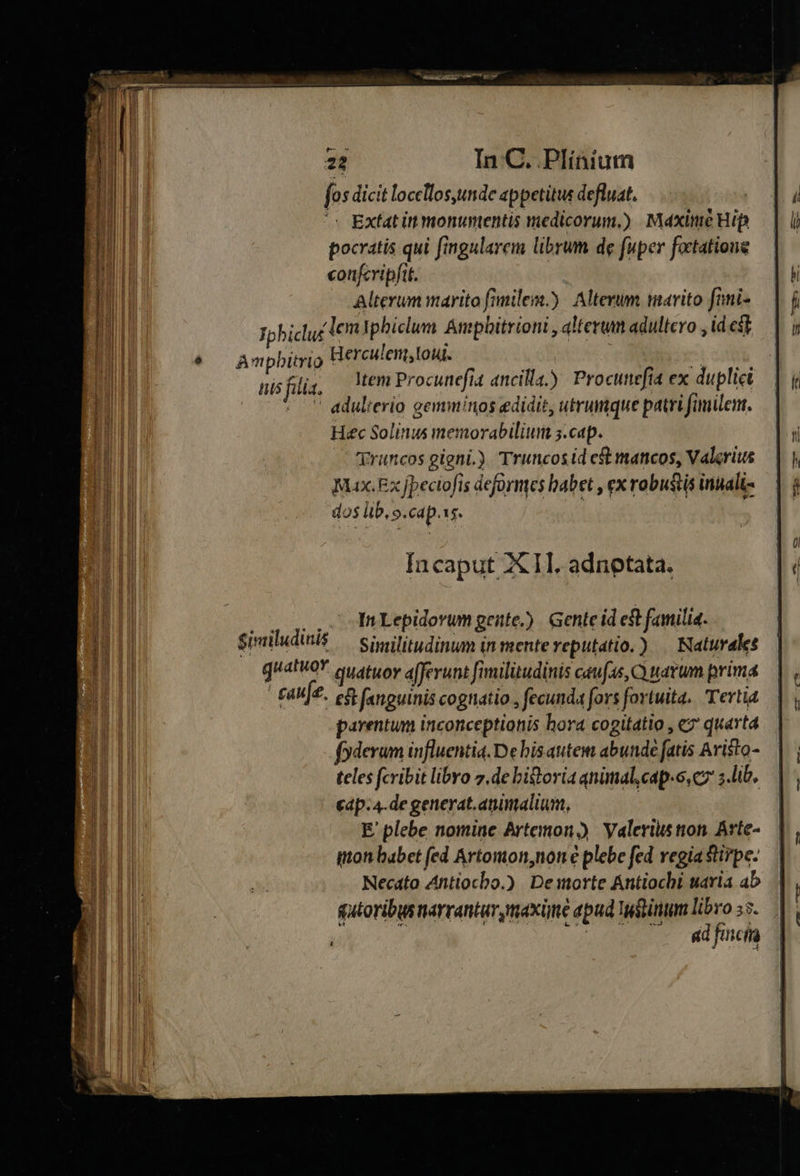 22 In C. Plinium
fos dicit locellos, unde appetitus defluat.
Extat in monumentis medicorum.) Maximè Hip
pocratis qui singularem librum de super fœtatione
conscripsit.
Alterum marito similem.) Alterum marito simi-
Iphiclus lem Iphiclum Amphitrioni, alterum adultero, id est
Amphitrio Herculem, Ioui.
nis filia. Item Proconnesia ancilla.) Procunesia ex duplici
adulterio geminos ædidit, utrumque patri similem.
Hæc Solinus memorabilium 5.cap.
Truncos gigni.) Truncos id est mancos, Valerius
Max. Ex speciosis deformes habet, ex robustis inuali-
dos lib. 9. cap. 15.
In caput XII. adnotata.
In Lepidorum gente.) Gente id est familia.
Similudinis Similitudinum in mente reputatio.) Naturales
quatuor quatuor afferunt similitudinis causas, Quarum prima
cause. est sanguinis cognatio, secunda fors fortuita. Tertia
parentum inconceptionis hora cogitatio, & quarta
syderum influentia. De his autem abundè satis Aristo-
teles scribit libro 7. de historia animal. cap. 6, & 5. lib.
cap. 4. de generat. animalium.
E' plebe nomine Artemon.) Valerius non Arte-
mon habet sed Artomon, non è plebe sed regia stirpe.
Necato Antiocho.) De morte Antiochi uaria ab
autoribus narrantur, maximè apud Iustinum libro 38.
ad finem